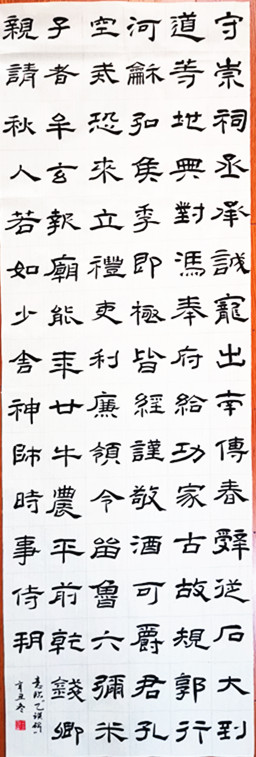 守崇祠丞承誠寵出南傳春辭從石大到
道等地典對馮奉府給功家古故規郭行
河龢弘侯季即極皆經謹敬酒可爵君孔
空恐來立禮吏利廉領令留魯六彌米
子者牟玄報廟能年廿牛農平前乾錢卿
親請秋人若如少舍神師時事侍朔
意臨乙瑛碑
辛丑冬